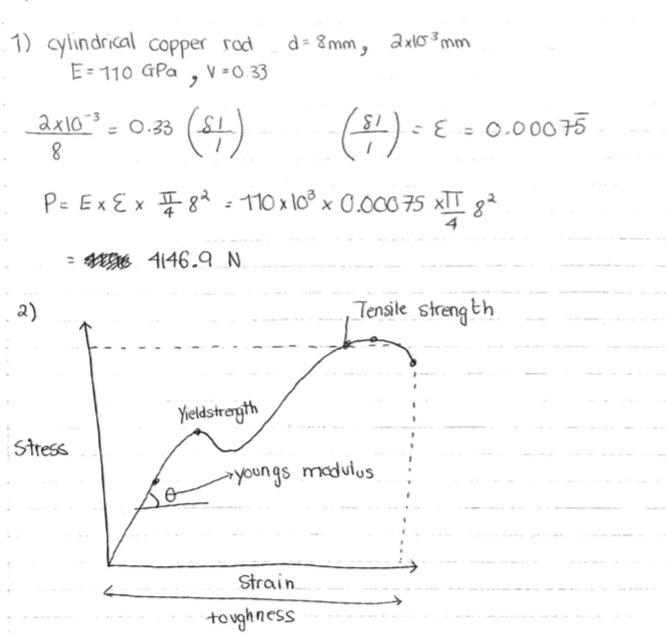 1) cylindrical copper rod d= 8mm, 2x10⁻³mm
E = 110 GPa, V = 0.33
2x10⁻³/8 = 0.33 (δl/l) (δl/l) = ε = 0.00075̅
P = E x ε x π/4 8² = 110x10³ x 0.00075 x π/4 8²
= 4146.9 N
2)
Tensile strength
Yieldstrength
Stress
θ youngs modulus
Strain
toughness